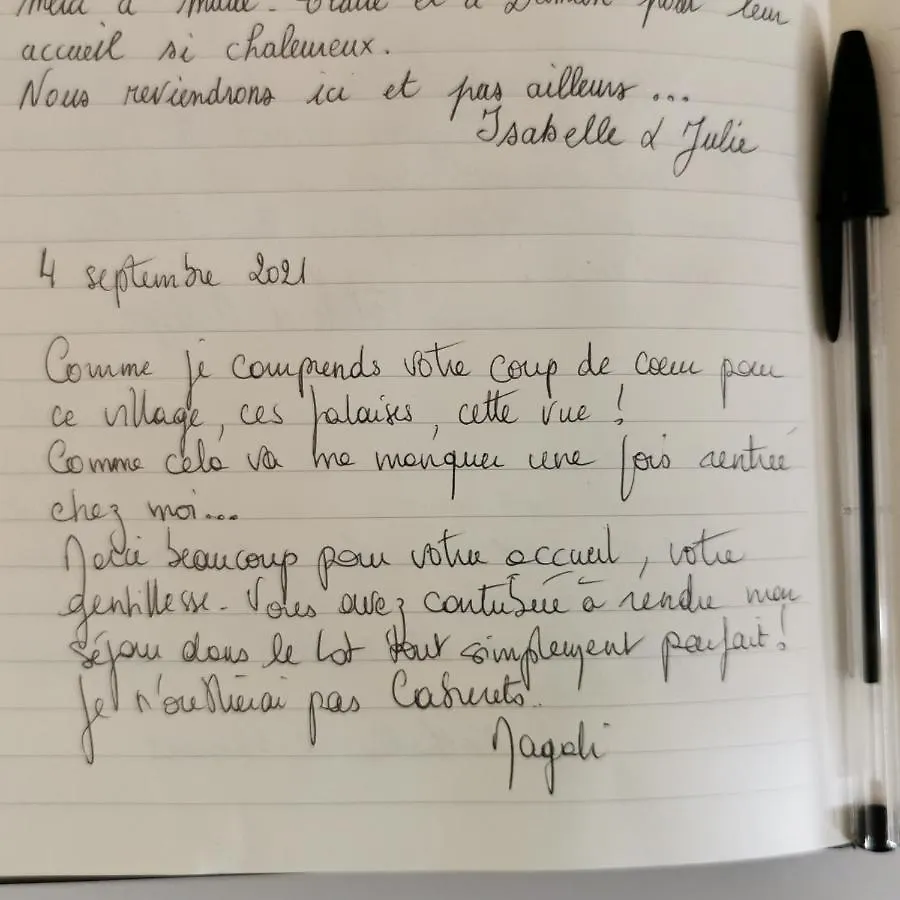 Merci à et à Damien pour leur
accueil si chaleureux.
Nous reviendrons ici et pas ailleurs ...
Isabelle & Julie
4 septembre 2021
Comme je comprends votre coup de cœur pour
ce village, ces falaises, cette vue !
Comme cela va me manquer une fois rentrée
chez moi...
Merci beaucoup pour votre accueil, votre
gentillesse. Vous avez contribué à rendre mon
séjour dans le Lot tout simplement parfait !
Je n'oublierai pas Cabrerets.
Magali